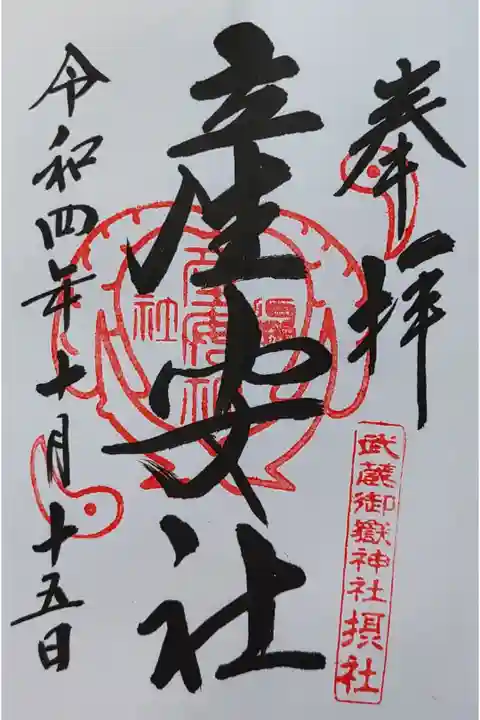 奉拝
産安社
武蔵御嶽神社摂社
令和四年十月十五日